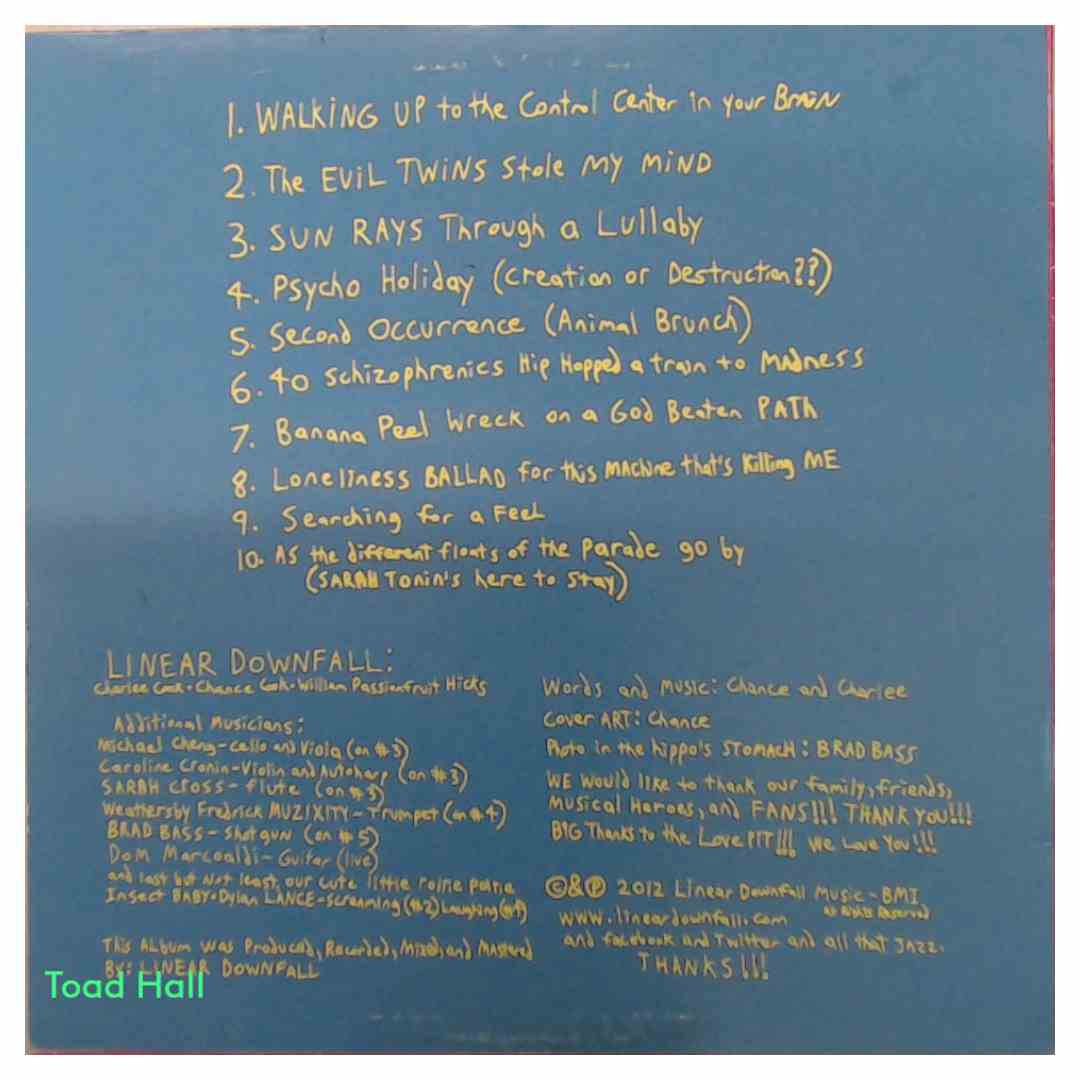 1. WALKING UP to the Control Center in your BRAIN
2. The EVIL TWINS Stole MY MIND
3. SUN RAYS Through a Lullaby
4. Psycho Holiday (Creation or Destruction??)
5. Second Occurrence (Animal Brunch)
6. 40 Schizophrenics Hip Hopped a train to MADNESS
7. Banana Peel Wreck on a God Beaten PATH
8. Loneliness BALLAD for this MACHINE that's Killing ME
9. Searching for a Feel
10. AS the different floats of the Parade go by
(SARAH Tonin's here to Stay)
LINEAR DOWNFALL:
Charlee Cook • Chance Cook • William Passionfruit Hicks
Additional Musicians:
Michael Cheng - Cello and Viola (on #3)
Caroline Cronin - Violin and Autoharp (on #3)
SARAH Cross - flute (on #3)
Weathersby Fredrick MUZIXITY - Trumpet (on #4)
BRAD BASS - Shotgun (on #5)
Dom Marcoaldi - Guitar (live)
and last but Not least, our cute little
Insect BABY • Dylan LANCE - Screaming (#2) Laughing
This ALBUM was Produced, Recorded, Mixed, and Mastered
BY: LINEAR DOWNFALL
Words and Music: Chance and Charlee
Cover ART: Chance
Photo in the hippo's STOMACH: BRAD BASS
WE Would like to thank our family, friends,
Musical Heroes, and FANS!!! THANK YOU!!!
BIG Thanks to the Love PIT!!! We Love You!!!
©&℗ 2012 Linear Downfall Music - BMI
All Rights Reserved
www.lineardownfall.com
and facebook and Twitter and all that JAZZ.
THANKS!!!
Toad Hall